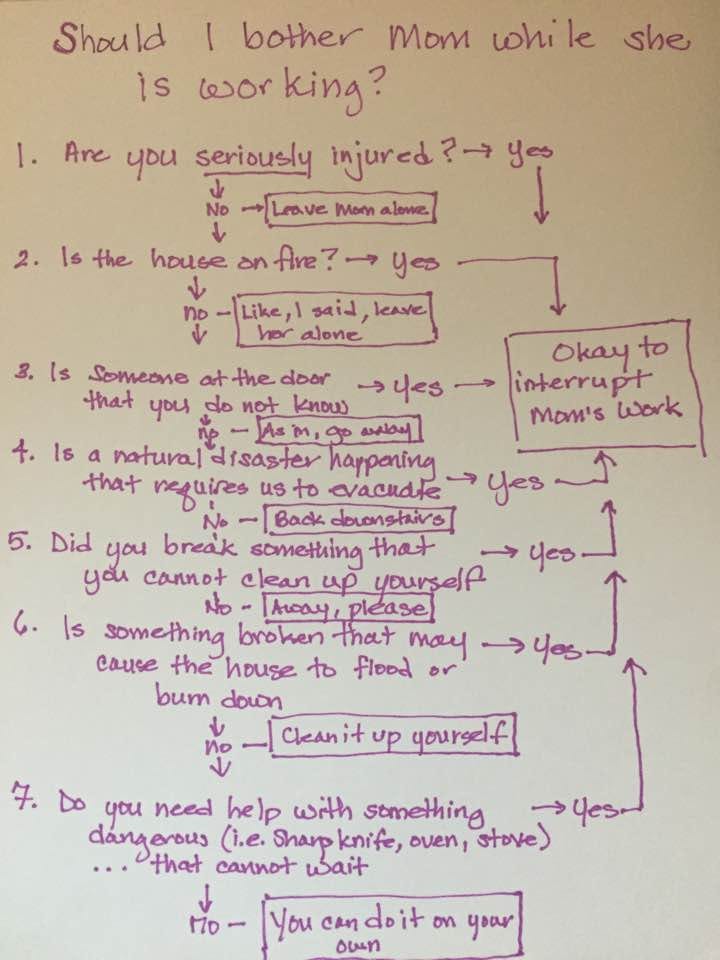 Should I bother Mom while she
is working?
1. Are you seriously injured? → yes
No → Leave Mom alone
2. Is the house on fire? → yes
no - Like, I said, leave
her alone
Okay to
interrupt
Mom's work
3. Is Someone at the door
that you do not know → yes →
no - As in, go away
4. Is a natural disaster happening
that requires us to evacuate → yes
No - Back downstairs
5. Did you break something that
you cannot clean up yourself → yes
No - Away, please
6. Is something broken that may → yes
cause the house to flood or
burn down
no - Clean it up yourself
7. Do you need help with something → yes
dangerous (i.e. Sharp knife, oven, stove)
... that cannot wait
no - You can do it on your
own